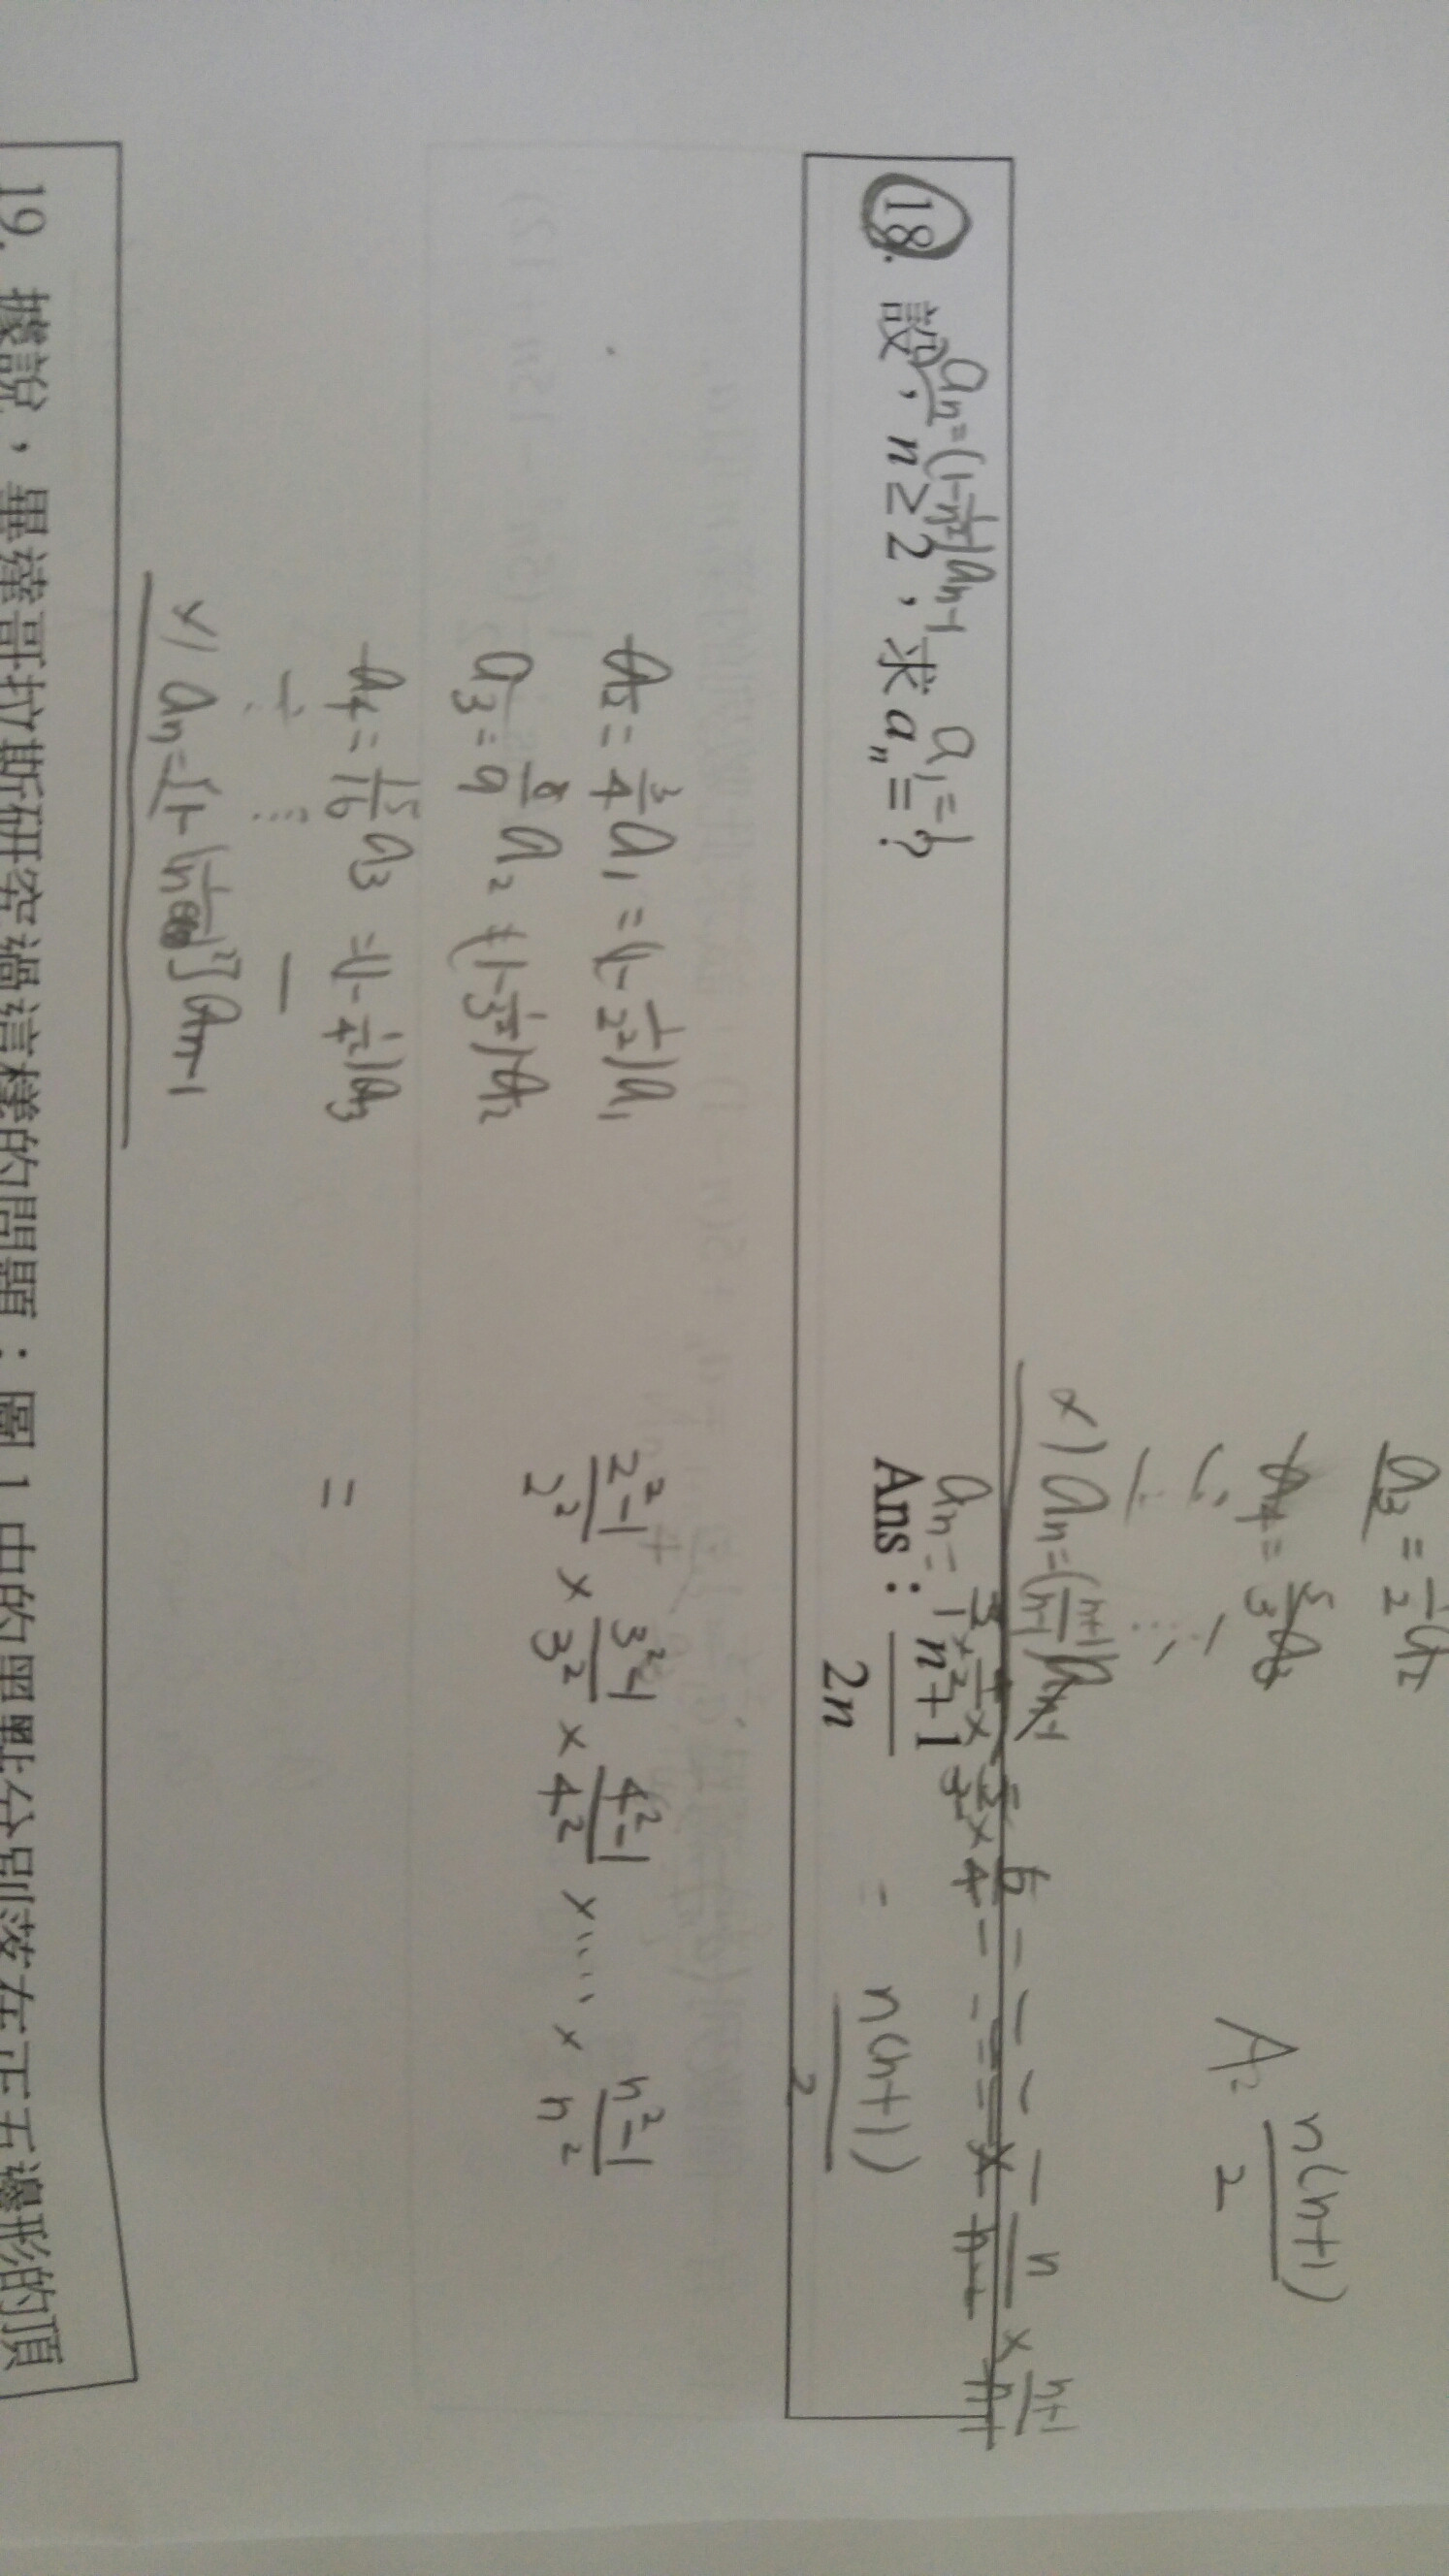 a₃ = 1/2 a₂
a₄ = 5/3 a₃
×) aₙ = (n+1/n-1) aₙ₋₁
A: n(n+1)/2
aₙ = 3/1 × 4/2 × 5/3 × 6/4 - - - - - × n/n-2 × n+1/n-1
= n(n+1)/2
aₙ = (1 - 1/n²) aₙ₋₁ a₁ = 1
18. 設, n ≥ 2,求 aₙ = ? Ans : n+1/2n
a₂ = 3/4 a₁ = (1 - 1/2²) a₁
a₃ = 8/9 a₂ = (1 - 1/3²) a₂
a₄ = 15/16 a₃ = (1 - 1/4²) a₃
×) aₙ = [1 - (1/n)²] aₙ₋₁
2²-1/2² × 3²-1/3² × 4²-1/4² × ···· × n²-1/n²
=
19. 據說,畢達哥拉斯研究過這樣的問題:圖 1 中的黑點分別落在正五邊形的頂